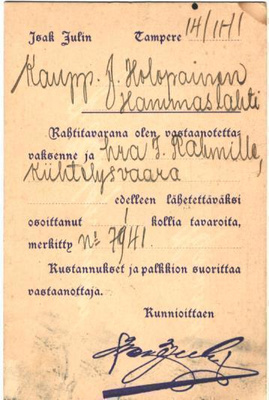 Isak Julin Tampere 14/III1
Kaupp. J. Holopainen
Hammaslahti
Rahtitavarana olen vastaanotetta-
vaksenne ja hra J. Rahmille,
Kiihtelysvaara
edelleen lähetettäväksi
osoittanut 1 kollia tavaroita,
merkitty No 7941.
Kustannukset ja palkkion suorittaa
vastaanottaja.
Kunnioittaen